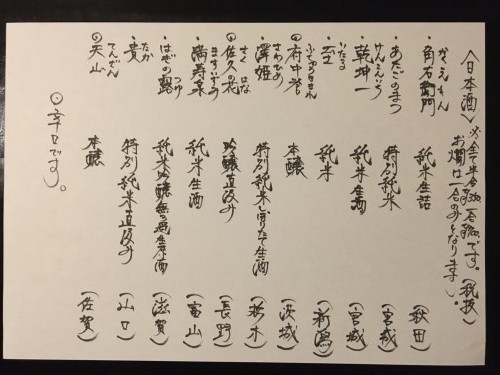 〈日本酒〉※全て半合 一合 です。(税抜)
お燗は一合のみとなります。
・角右衛門 かくえもん 純米生詰 (秋田)
・あたごのまつ 特別純米 (宮城)
・乾坤一 けんこんいち 純米生酒 (宮城)
・至 いたる 純米 (新潟)
◎府中誉 ふちゅうほまれ 本醸 (茨城)
・澤姫 さわひめ 特別純米しぼりたて生酒 (栃木)
◎佐久の花 さくのはな 吟醸直汲み (長野)
・満寿泉 ますいずみ 純米生酒 (富山)
・はぎの露 つゆ 純米吟醸無ろ過生原酒 (滋賀)
・貴 たか 特別純米直汲み (山口)
◎天山 てんざん 本醸 (佐賀)
◎辛口です。